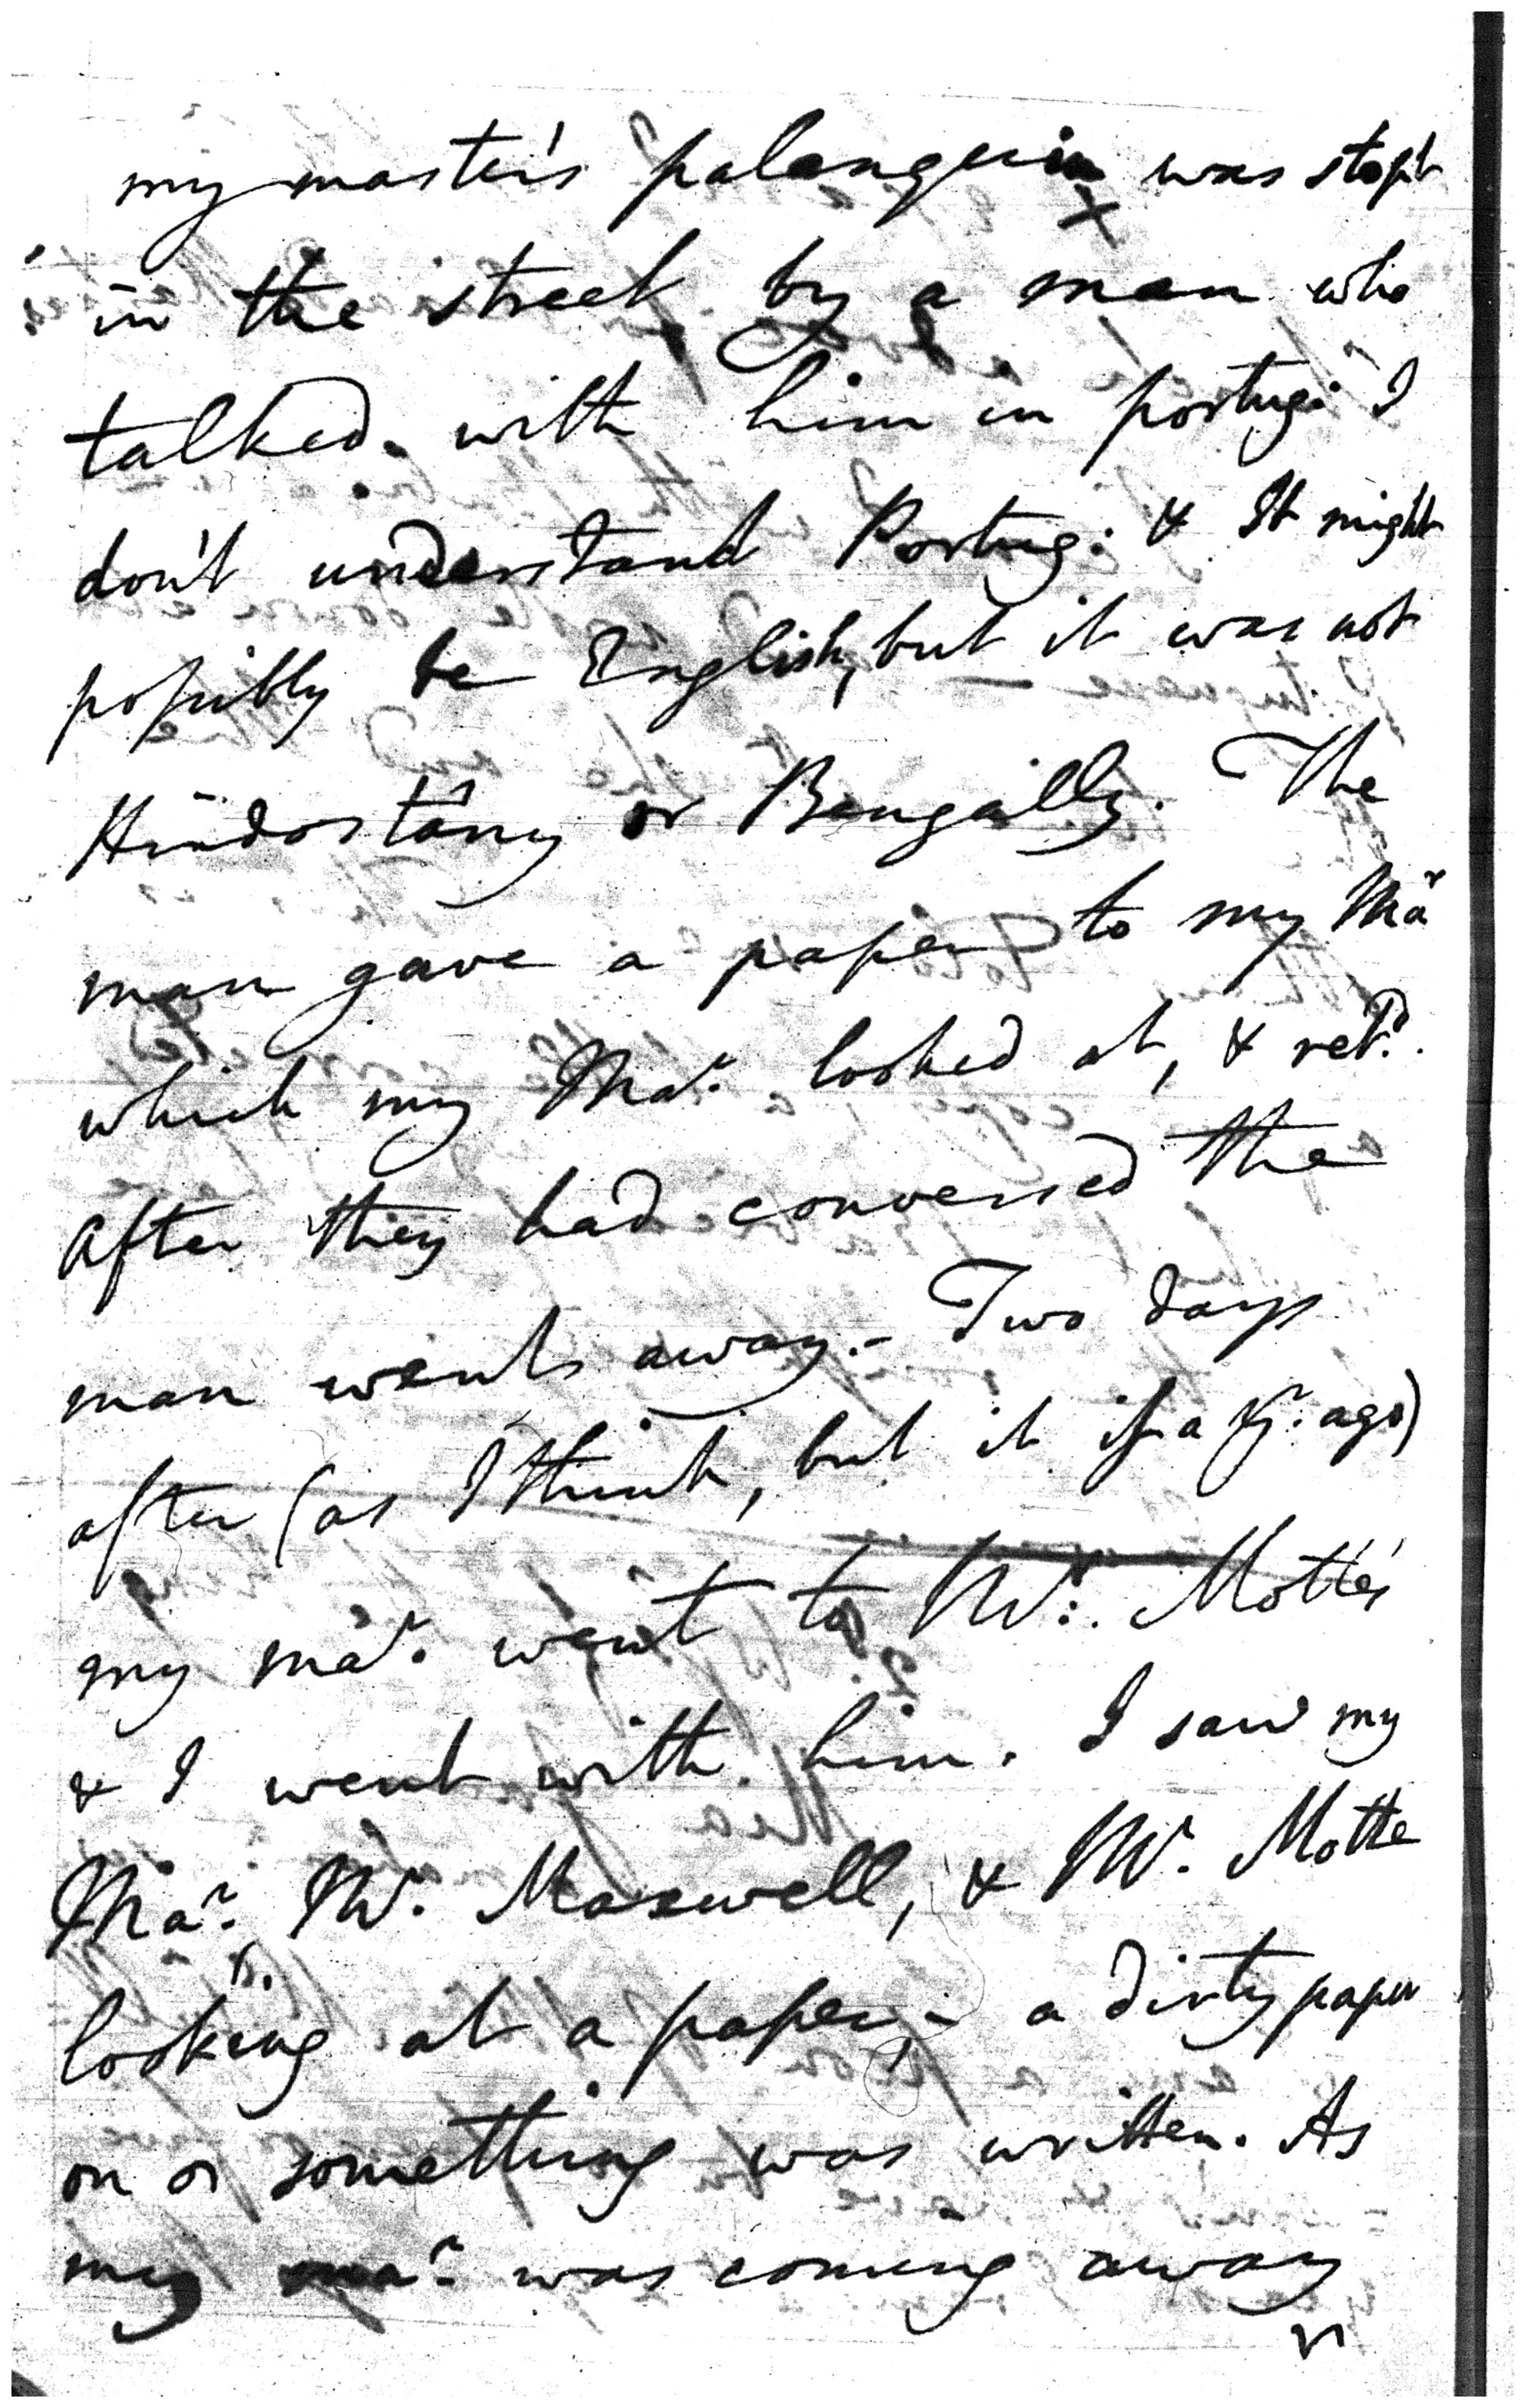 my master's palanquin was stopt
in the street by a man who
talked with him in portug: I
don't understand Portug: & It might
possibly be English, but it was not
Hindostány or Bengally. The
man gave a paper to my Mar
which my Mar. looked at, & retd.
After they had conversed the
man went away. - Two days
after (as I think, but it is a yr: ago)
my mar. went to Mr: Motte's
& I went with him. I saw my
Mar. Mr. Maxwell, & Mr. Motte
looking at a paper, - a dirty paper
on
something was written. As
my mar. was coming away